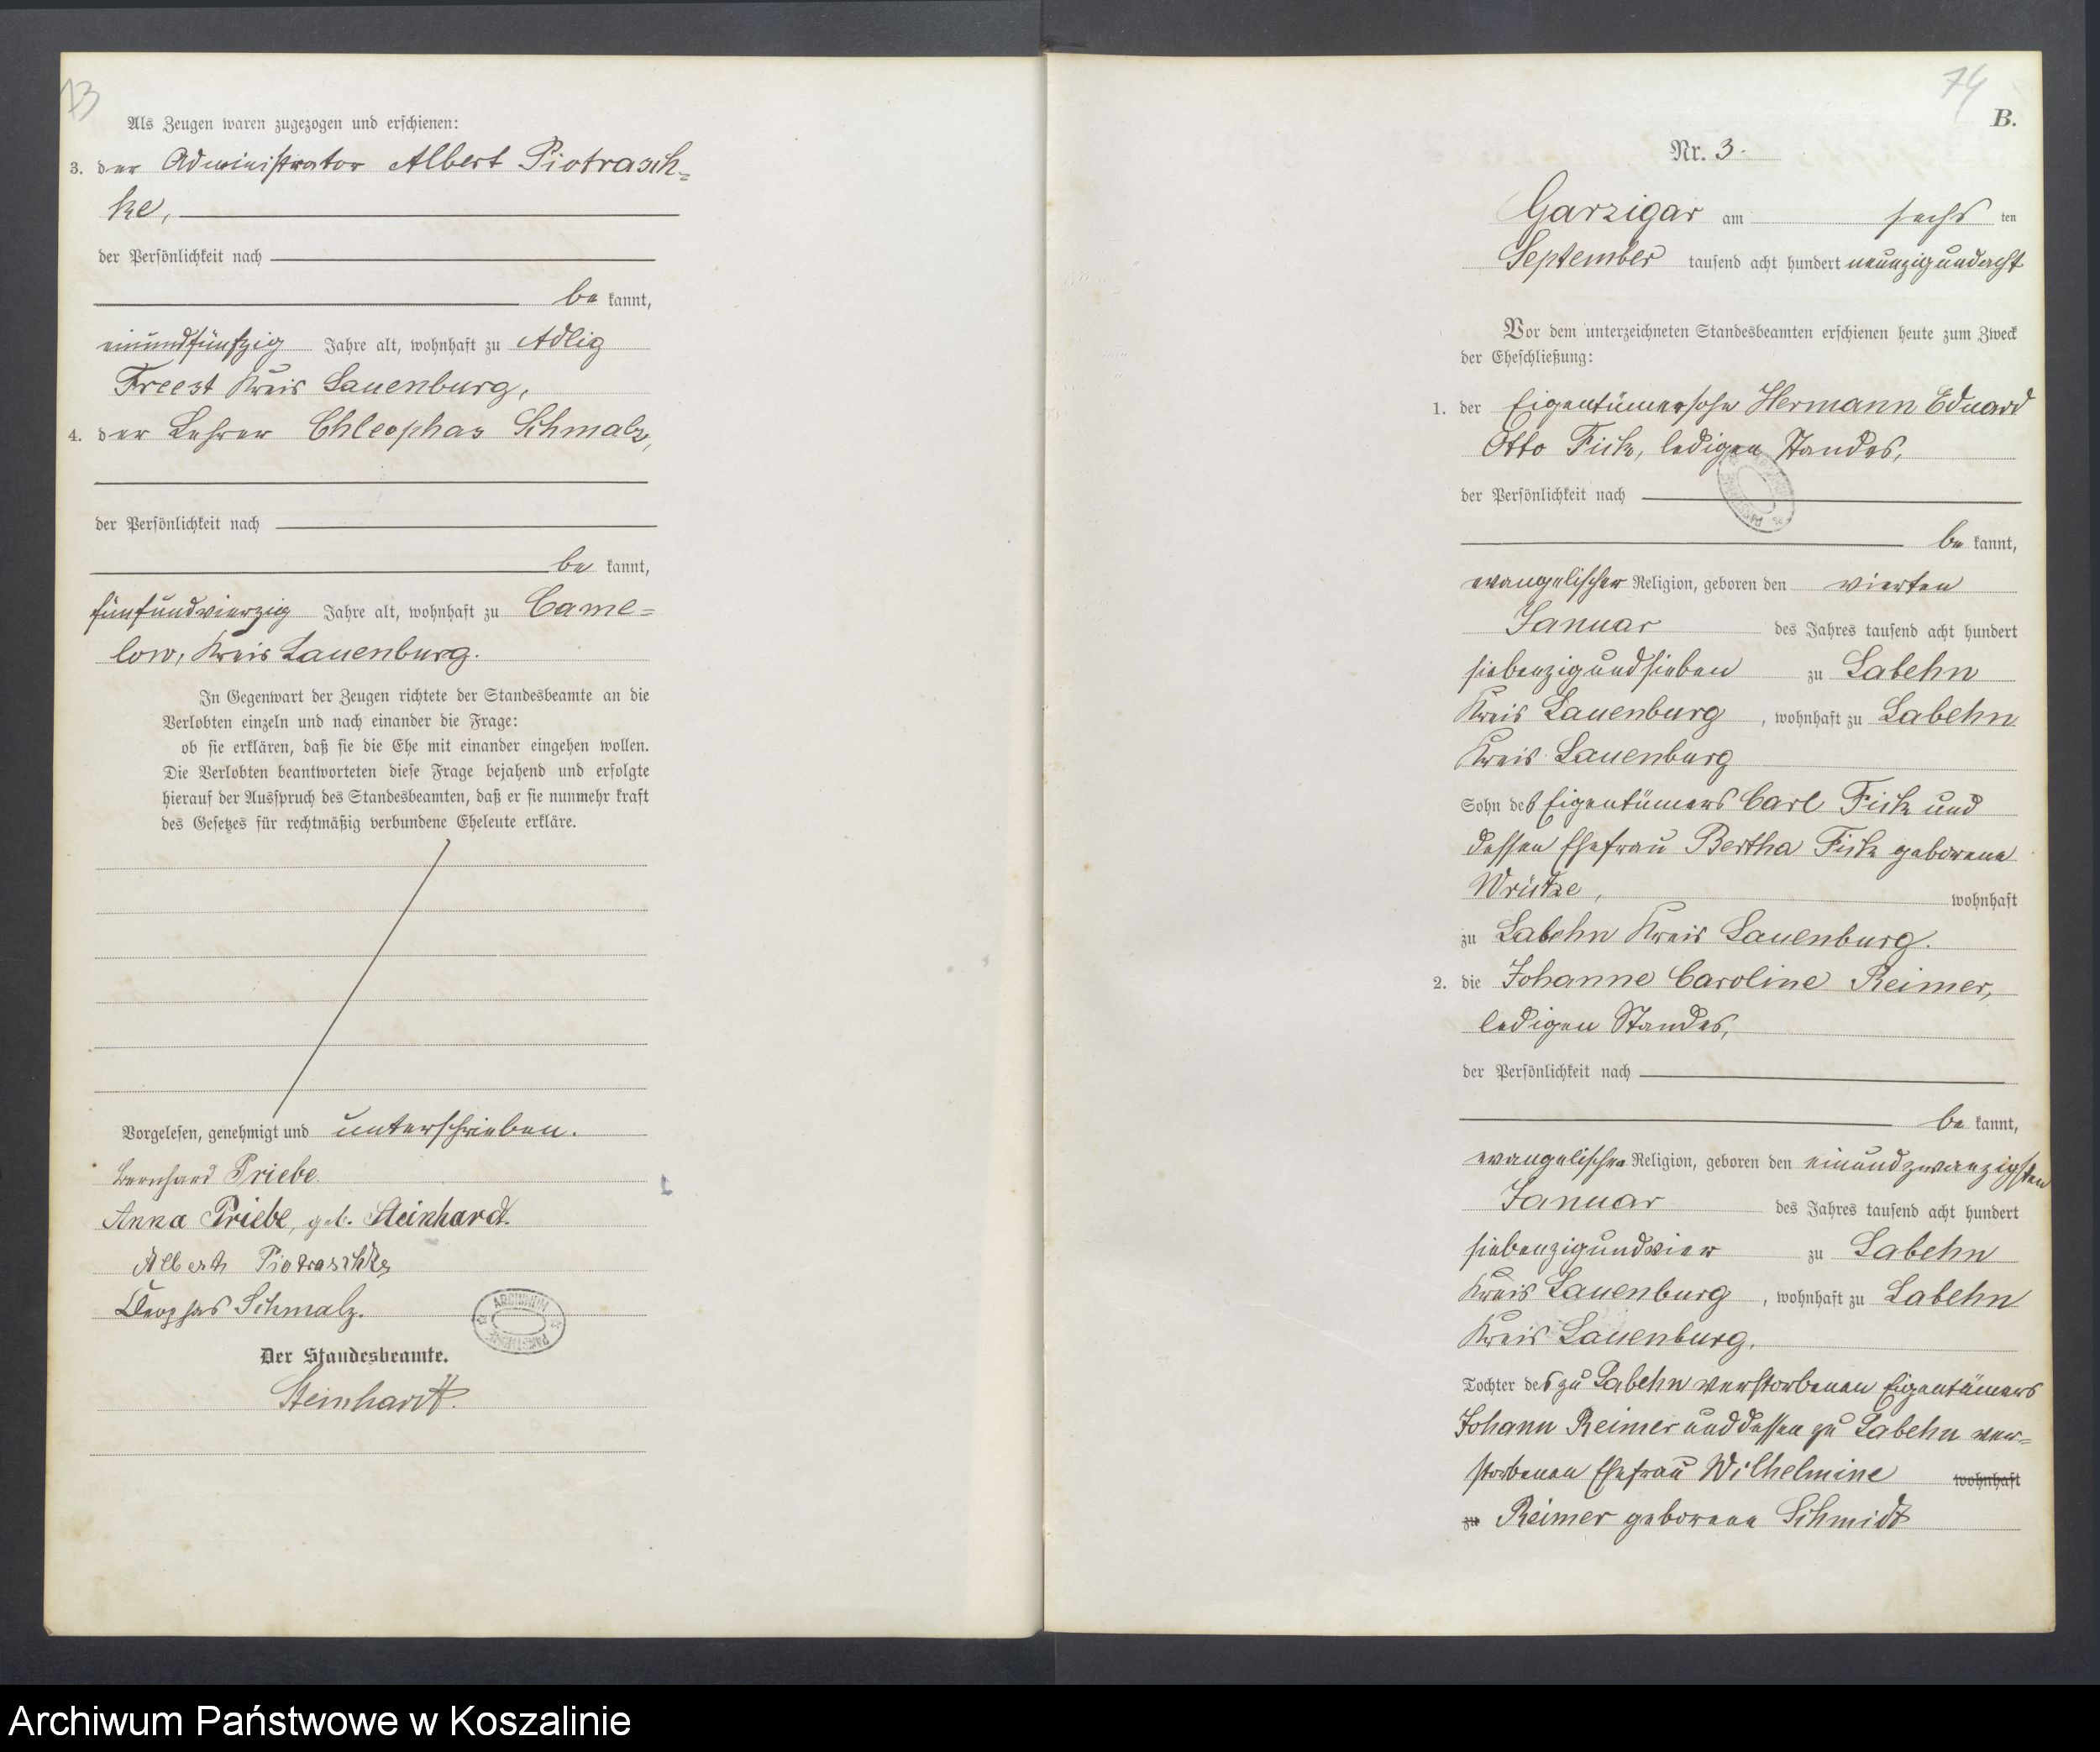 13
Als Zeugen waren zugezogen und erschienen:
3. der Administrator Albert Piotrasch-
ke,
der Persönlichkeit nach
be kannt,
einundfünfzig Jahre alt, wohnhaft zu Adlig
Freest Kreis Lauenburg,
4. der Lehrer Chleophas Schmalz,
der Persönlichkeit nach
be kannt,
fünfundvierzig Jahre alt, wohnhaft zu Came-
low, Kreis Lauenburg.
In Gegenwart der Zeugen richtete der Standesbeamte an die
Verlobten einzeln und nach einander die Frage:
ob sie erklären, daß sie die Ehe mit einander eingehen wollen.
Die Verlobten beantworteten diese Frage bejahend und erfolgte
hierauf der Ausspruch des Standesbeamten, daß er sie nunmehr kraft
des Gesetzes für rechtmäßig verbundene Eheleute erkläre.
Vorgelesen, genehmigt und unterschrieben.
Bernhard Priebe.
Anna Priebe, geb. Steinhardt.
Albert Piotraschke
Cleophas Schmalz.
ARCHIWUM PAŃSTWOWE
Der Standesbeamte.
Steinhardt.
74
B.
Nr. 3.
Garzigar am sechs ten
September tausend acht hundert neunzigundacht
Vor dem unterzeichneten Standesbeamten erschienen heute zum Zweck
der Eheschließung:
1. der Eigentümersohn Hermann Eduard
Otto Fick, ledigen Standes,
der Persönlichkeit nach
be kannt,
evangelischer Religion, geboren den vierten
Januar des Jahres tausend acht hundert
siebenzigundsieben zu Labehn
Kreis Lauenburg, wohnhaft zu Labehn
Kreis Lauenburg
Sohn des Eigentümers Carl Fick und
dessen Ehefrau Bertha Fick geborene
Wrütze, wohnhaft
zu Labehn Kreis Lauenburg.
2. die Johanne Caroline Reimer,
ledigen Standes,
der Persönlichkeit nach
be kannt,
evangelischer Religion, geboren den einundzwanzigsten
Januar des Jahres tausend acht hundert
siebenzigundvier zu Labehn
Kreis Lauenburg, wohnhaft zu Labehn
Kreis Lauenburg.
Tochter des zu Labehn verstorbenen Eigentümers
Johann Reimer und dessen zu Labehn ver-
storbenen Ehefrau Wilhelmine wohnhaft
zu Reimer geborene Schmidt
Archiwum Państwowe w Koszalinie